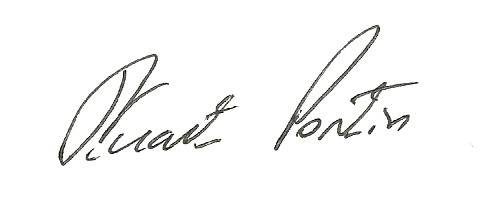 Stuart Pontin